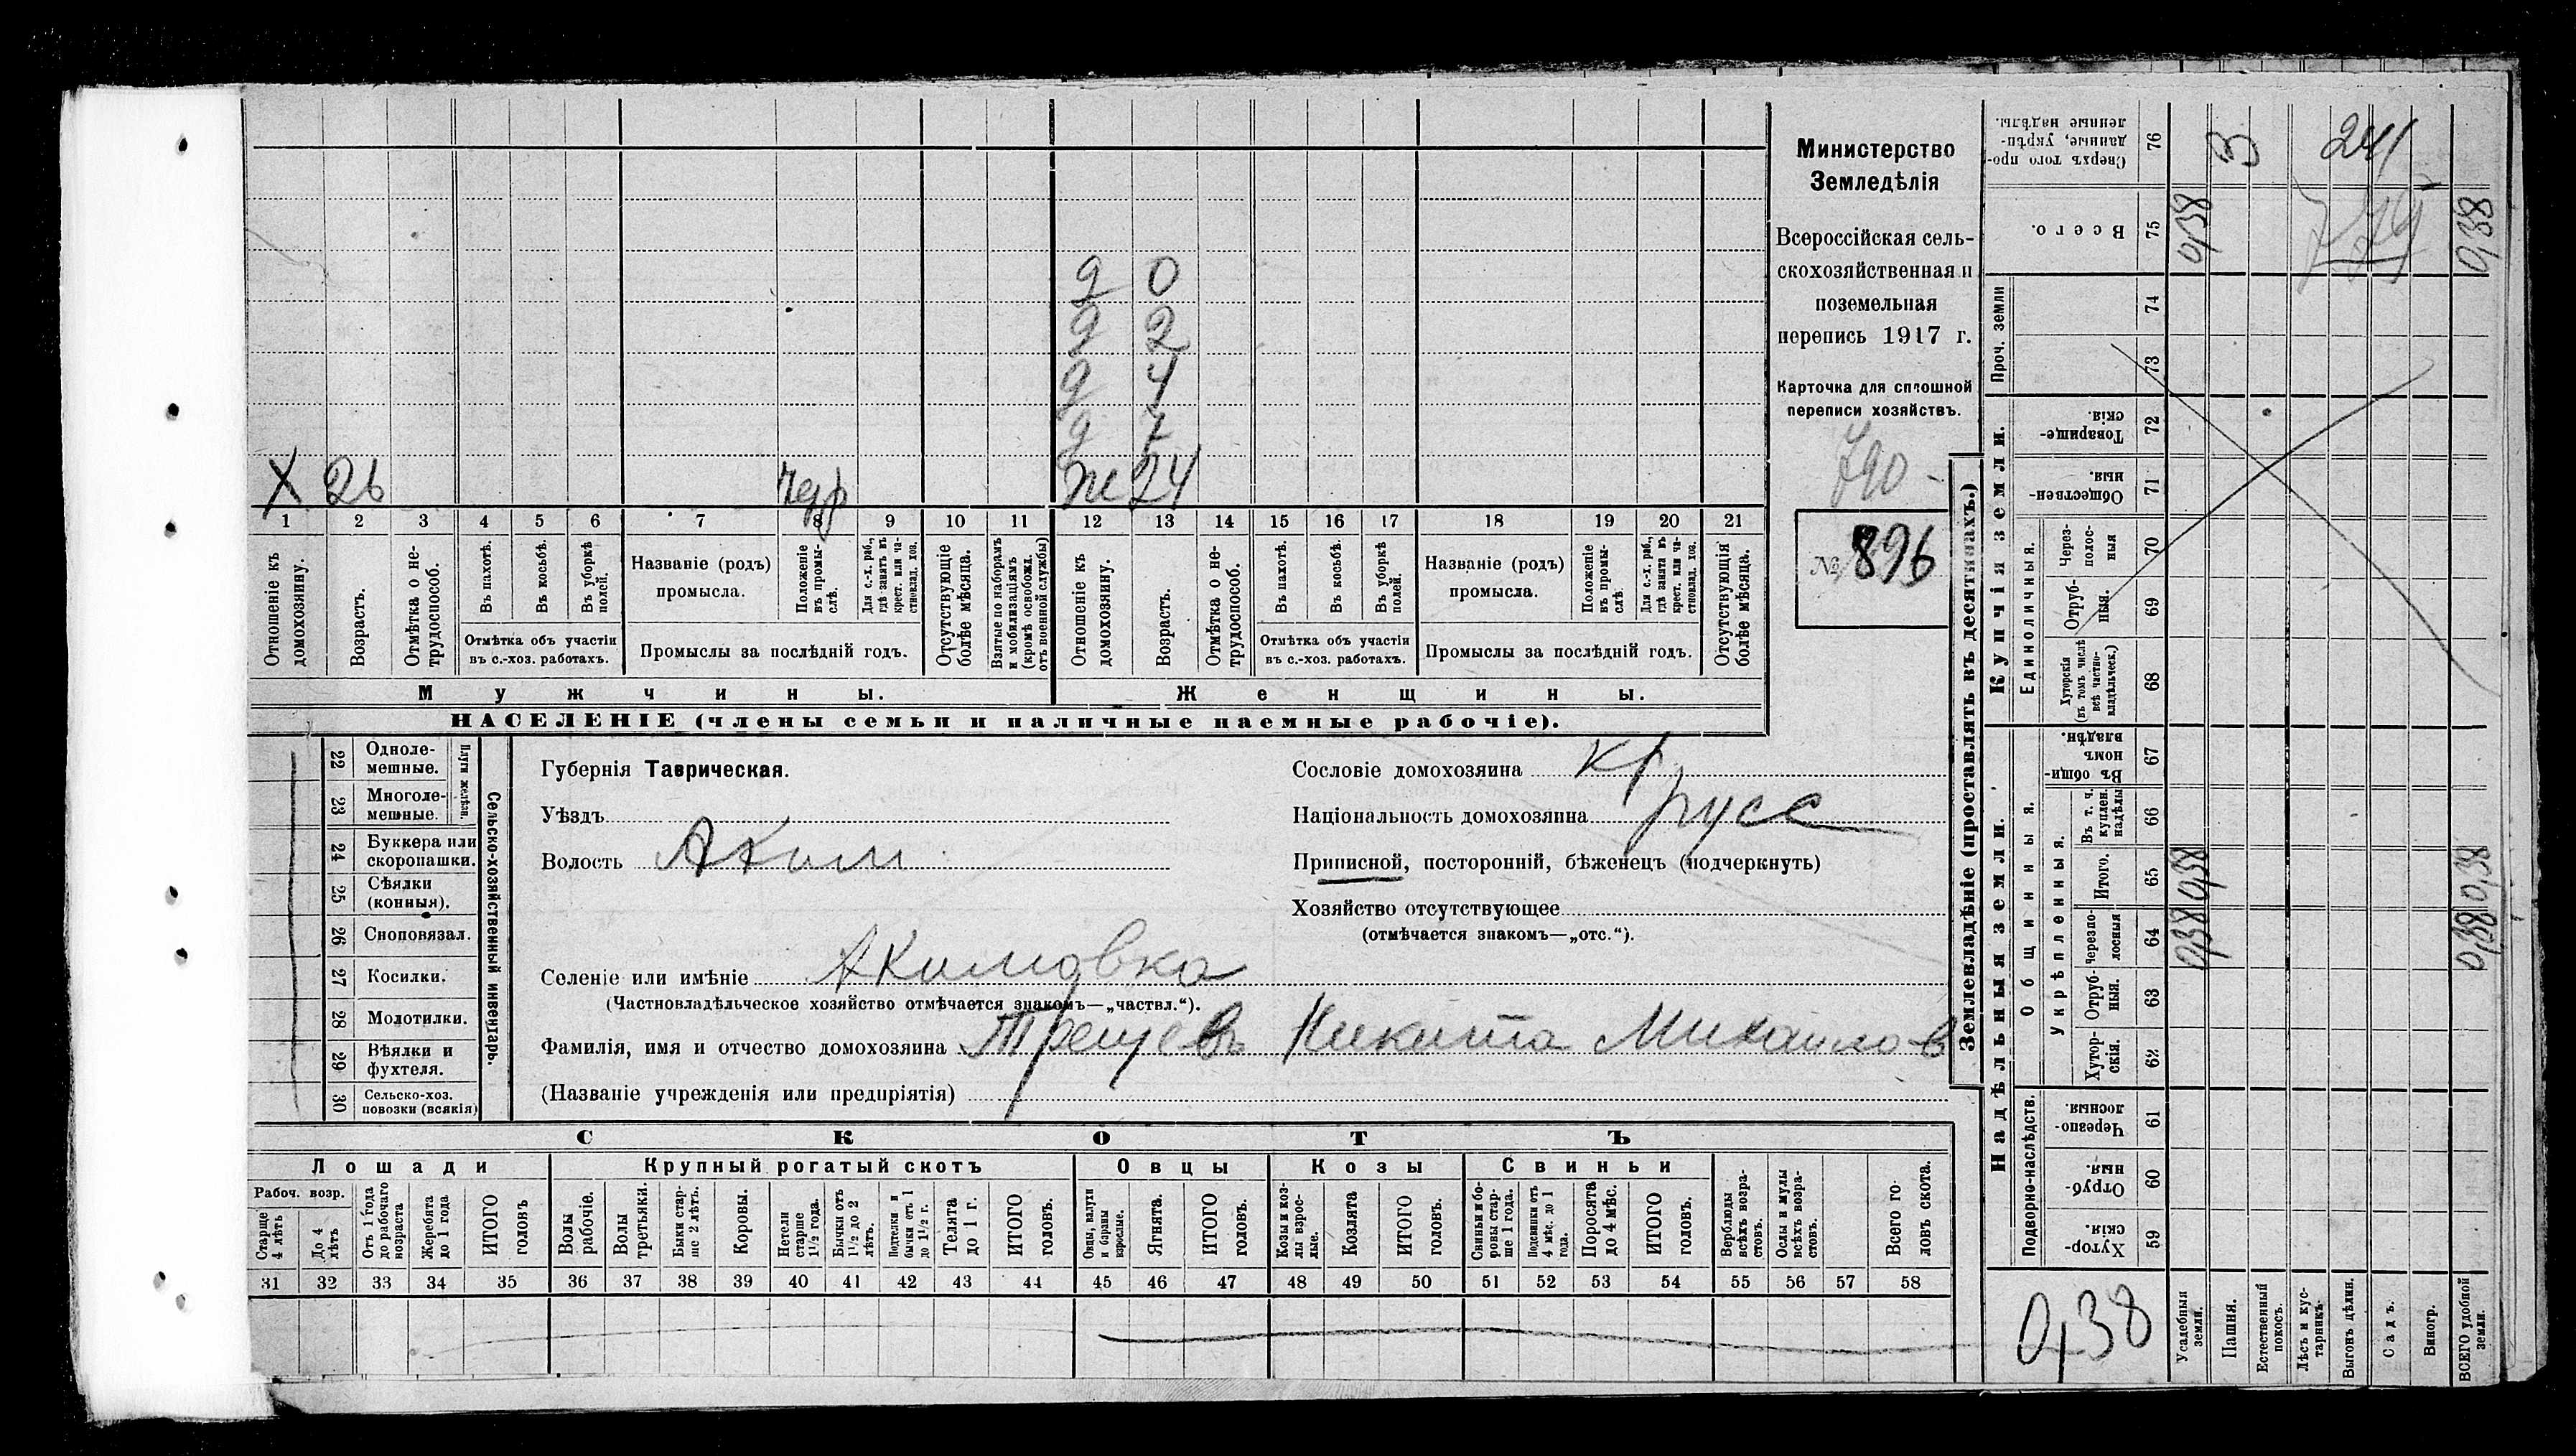 Министерство
Земледѣлія
Всероссійская сель-
скохозяйственная и
поземельная
перепись 1917 г.
Карточка для сплошной
переписи хозяйствъ.
790 -
№ 896
д 0
д 2
д 4
д 7
Х 26 ж 24
1 2 3 4 5 6 7 8 9 10 11 12 13 14 15 16 17 18 19 20 21
Отношеніе къ домохозяину.
Возрастъ.
Отмѣтка о не-трудоспособ.
Въ пахотѣ.
Въ косьбѣ.
Въ уборкѣ полей.
Отмѣтка объ участіи
въ с.-хоз. работахъ.
Названіе (родъ)
промысла.
Положеніе въ промы-слѣ.
Для с.-х. раб., гдѣ занятъ въ крест. или ча-стновлад. хоз.
Промыслы за послѣдній годъ.
Отсутствующіе болѣе мѣсяца.
Взятые по наборамъ и мобилизаціямъ (кромѣ освобожд. отъ военной службы)
Отношеніе къ домохозяину.
Возрастъ.
Отмѣтка о не-трудоспособ.
Въ пахотѣ.
Въ косьбѣ.
Въ уборкѣ полей.
Отмѣтка объ участіи
въ с.-хоз. работахъ.
Названіе (родъ)
промысла.
Положеніе въ промы-слѣ.
Для с.-х. раб., гдѣ занята въ крест. или ча-стновлад. хоз.
Промыслы за послѣдній годъ.
Отсутствующія болѣе мѣсяца.
Мужчины. Женщины.
НАСЕЛЕНІЕ (члены семьи и наличные наемные рабочіе).
22 Одноле-мешные.
23 Многоле-мешные.
Плуги желѣзн.
24 Буккера или скоропашки.
25 Сѣялки (конныя).
26 Сноповязал.
27 Косилки.
28 Молотилки.
29 Вѣялки и фухтеля.
30 Сельско-хоз. повозки (всякія)
Сельско-хозяйственный инвентарь.
Губернія Таврическая.
Уѣздъ
Волость Аким
Селеніе или имѣніе Акимовка
(Частновладѣльческое хозяйство отмѣчается знакомъ—„частвл.“).
Фамилія, имя и отчество домохозяина Трещевъ Никита Михаилов
(Названіе учрежденія или предпріятія)
Сословіе домохозяина кр
Національность домохозяина русс
Приписной, посторонній, бѣженецъ (подчеркнуть)
Хозяйство отсутствующее
(отмѣчается знакомъ—„отс.“).
СКОТЪ
Лошади Крупный рогатый скотъ Овцы Козы Свиньи
Рабоч. возр.
Старше 4 лѣтъ
До 4 лѣтъ
Отъ 1 года до рабочаго возраста
Жеребята до 1 года
ИТОГО головъ
Волы рабочіе.
Волы третьяки.
Быки стар-ше 2 лѣтъ.
Коровы.
Нетели старше 1½ года.
Бычки отъ 1½ до 2 лѣтъ.
Подтелки и бычки отъ 1 до 1½ г.
Телята до 1 г.
ИТОГО головъ.
Овцы, валухи и бараны взрослые.
Ягнята.
ИТОГО головъ.
Козы и коз-лы взрос-лые.
Козлята
ИТОГО головъ.
Свиньи и бо-ровы стар-ше 1 года.
Подсвинки отъ 4 мѣс. до 1 года.
Поросята до 4 мѣс.
ИТОГО головъ.
Верблюды всѣхъ возра-стовъ.
Ослы и мулы всѣхъ возра-стовъ.
Всего го-ловъ скота.
31 32 33 34 35 36 37 38 39 40 41 42 43 44 45 46 47 48 49 50 51 52 53 54 55 56 57 58
Землевладѣніе (проставлять въ десятинахъ.)
Надѣльныя земли. Купчія земли.
Проч. земли
Подворно-наслѣдств.
Общинныя.
Укрѣпленныя.
Единоличныя.
Сверхъ того про-данные, укрѣп-ленные надѣлы. 76 3 241
Всего. 75 0,38 779 0,38
74
73
Товарище-скія. 72
Обществен-ныя. 71
Через-полос-ныя 70
Отруб-ныя. 69
Хуторскія (въ томъ числѣ всѣ частно-владѣльческ.) 68
Въ общин-номъ владѣн. 67
Въ т. ч. куплен. надѣлы 66
Итого. 65 0,38 0,38
Черезпо-лосныя 64 0,38 0,38
Отруб-ныя. 63
Хутор-скія. 62
Черезпо-лосныя. 61
Отруб-ныя. 60
Хутор-скія. 59
0,38
Усадебныя земли.
Пашня.
Естественный покосъ.
Лѣсъ и кус-тарникъ.
Выгонъ дѣлин.
Садъ.
Виногр.
ВСЕГО удобной земли.